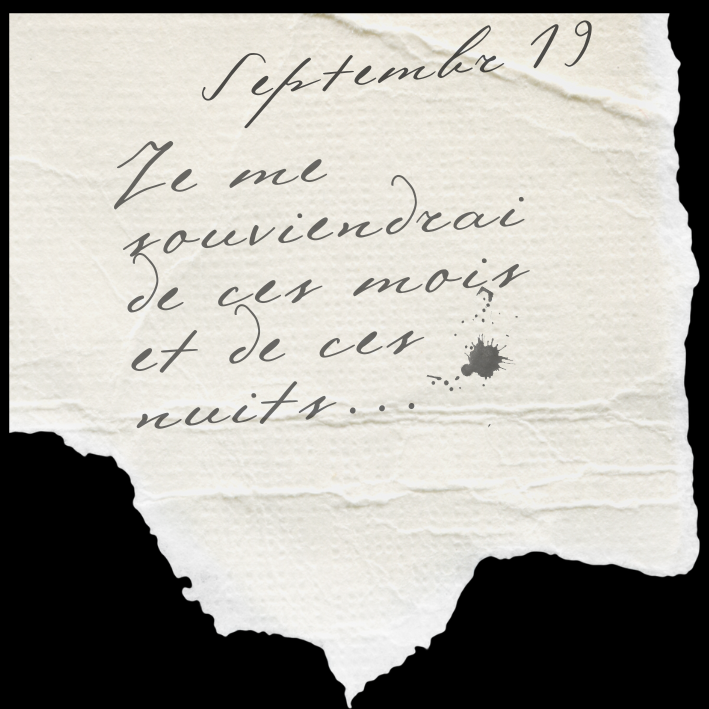 Septembr 19
Je me
souviendrai
de ces mois
et de ces
nuits...